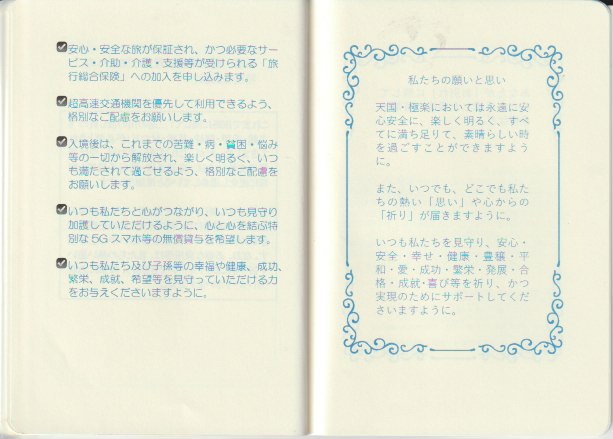 安心・安全な旅が保証され、かつ必要なサー
ビス・介助・介護・支援等が受けられる「旅
行総合保険」への加入を申し込みます。
超高速交通機関を優先して利用できるよう、
格別なご配慮をお願いします。
入境後は、これまでの苦難・病・貧困・悩み
等の一切から解放され、楽しく明るく、いつ
も満たされて過ごせるよう、格別なご配慮を
お願いします。
いつも私たちと心がつながり、いつも見守り
加護していただけるように、心と心を結ぶ特
別な5Gスマホ等の無償貸与を希望します。
いつも私たち及び子孫等の幸福や健康、成功、
繁栄、成就、希望等を見守っていただける力
をお与えくださいますように。
私たちの願いと思い
天国・極楽においては永遠に安
心安全に、楽しく明るく、すべ
てに満ち足りて、素晴らしい時
を過ごすことができますよう
に。
また、いつでも、どこでも私た
ちの熱い「思い」や心からの
「祈り」が届きますように。
いつも私たちを見守り、安心・
安全・幸せ・健康・豊穣・平
和・愛・成功・繁栄・発展・合
格・成就・喜び等を祈り、かつ
実現のためにサポートしてくだ
さいますように。